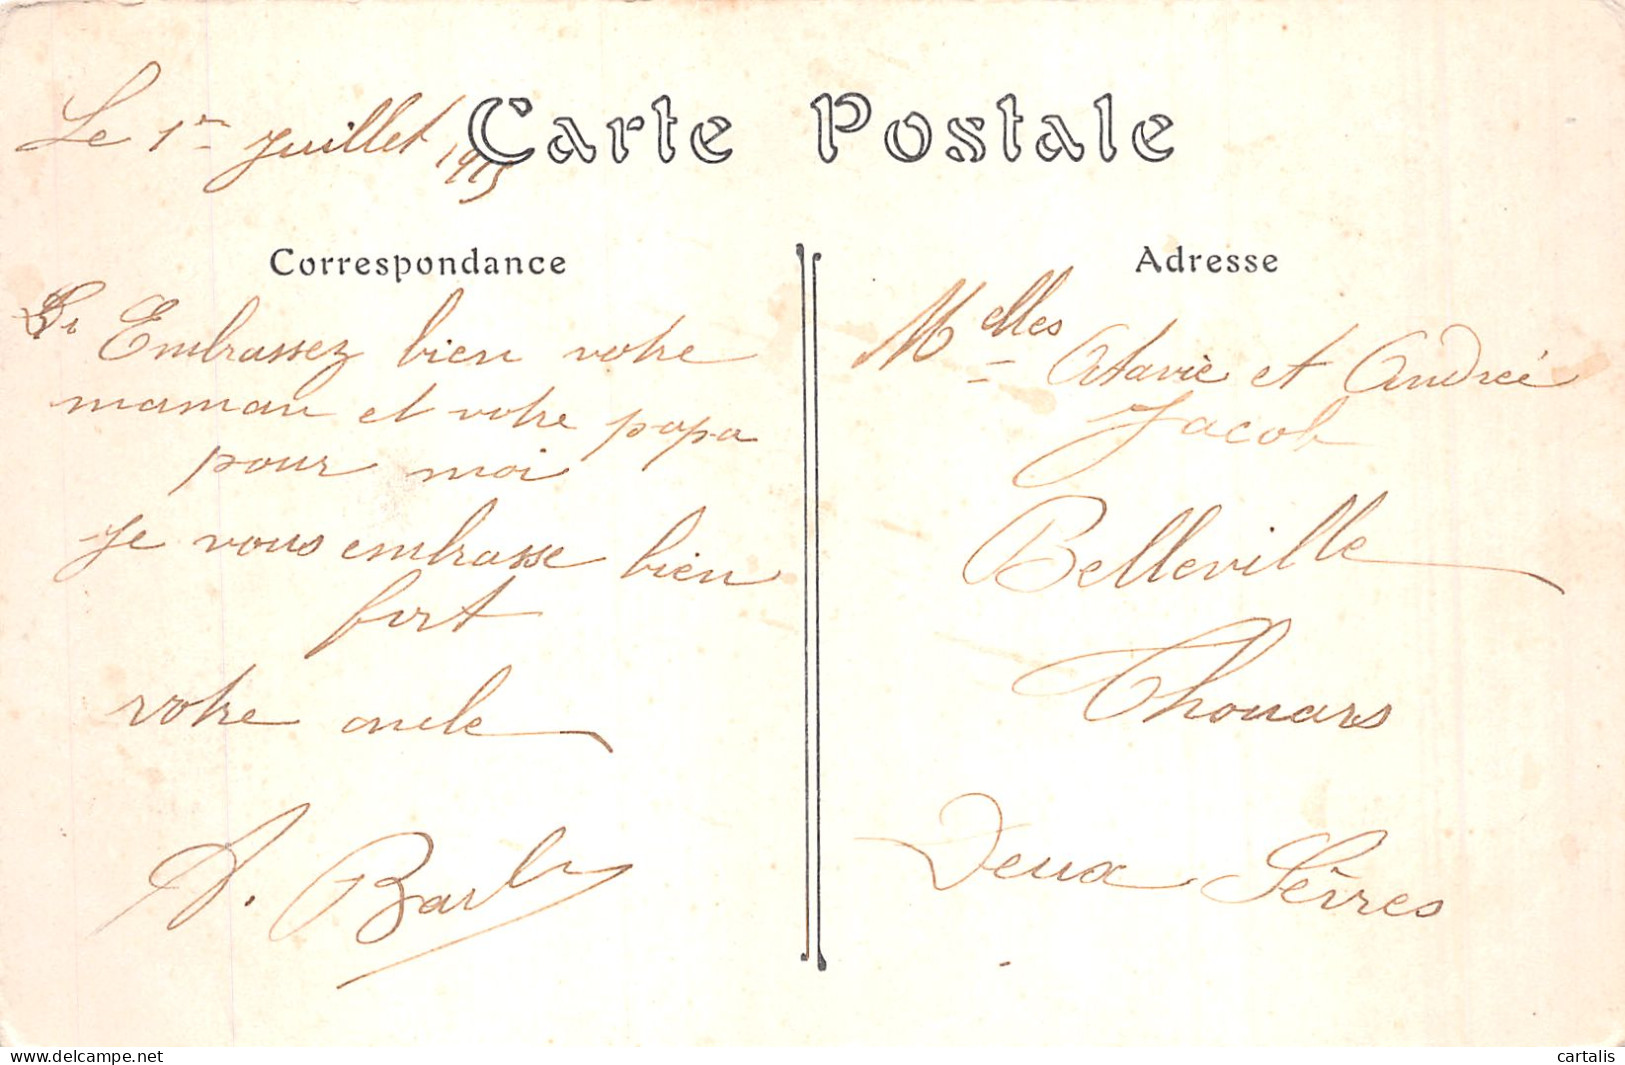 Le 1er Juillet 1915
Carte Postale
Correspondance
Embrassez bien votre
maman et votre papa
pour moi
Je vous embrasse bien
fort
votre oncle
A.
Adresse
Melles Octavie et Andrée
Jacob
Belleville
Thouars
Deux Sèvres
delcampe.net
cartalis